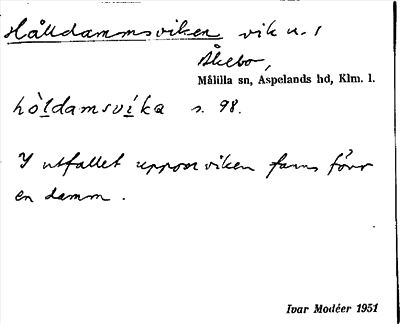 Hålldammsviken vik n. 1
Åkebo,
Målilla sn, Aspelands hd, Klm. l.
hòldamsvíka s. 98.
I utfallet uppom viken fanns förr
en damm.
Ivar Modéer 1951